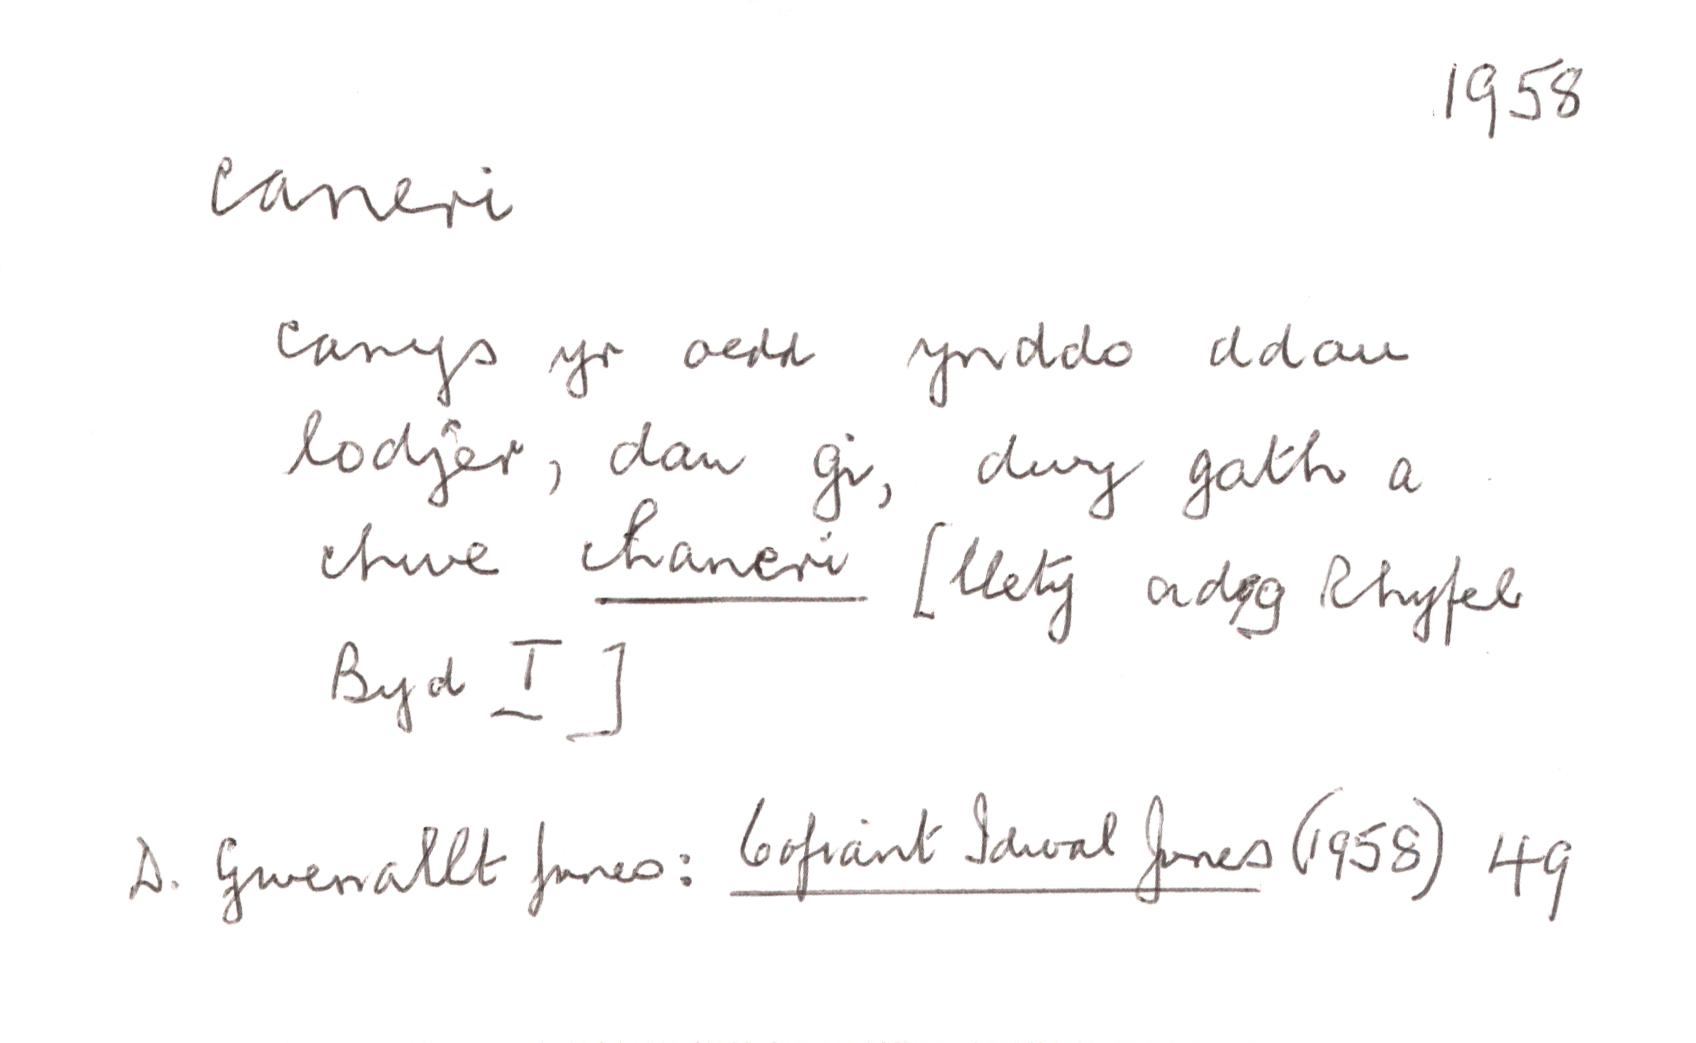 1958
caneri
canys yr oedd ynddo ddau
lodjer, dau gi, dwy gath a
chwe chaneri [llety adeg Rhyfel
Byd I]
D. Gwenallt Jones: Cofiant Idwal Jones (1958) 49